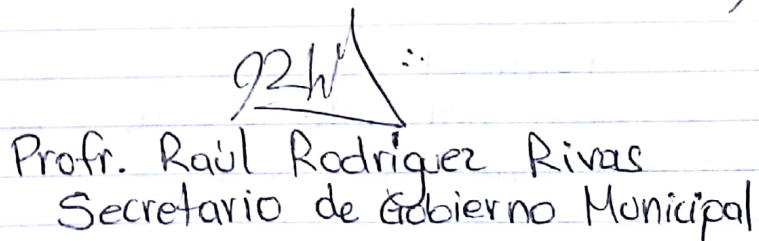 Profr. Raúl Rodriguez Rivas
Secretario de Gobierno Municipal